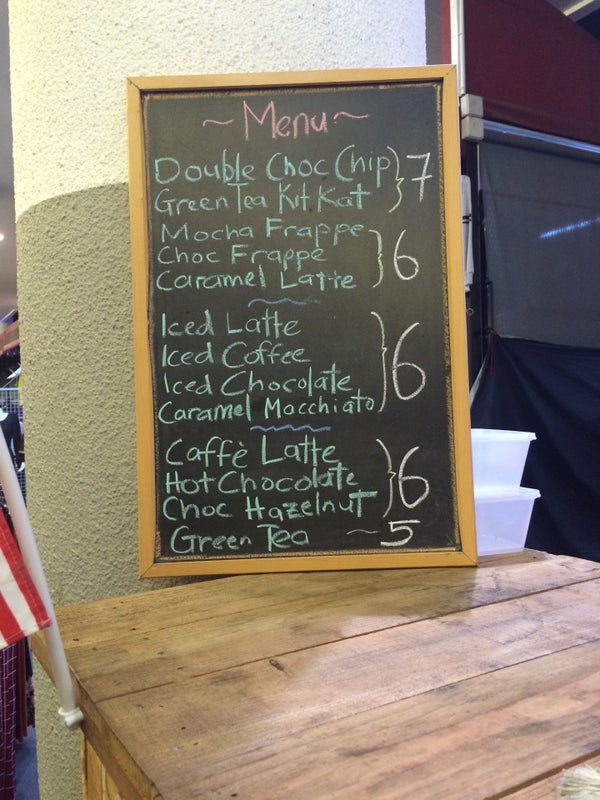 ~ Menu ~
Double Choc Chip } 7
Green Tea Kit Kat
Mocha Frappe
Choc Frappe } 6
Caramel Latte
Iced Latte
Iced Coffee } 6
Iced Chocolate
Caramel Macchiato
Caffè Latte
Hot Chocolate } 6
Choc Hazelnut
Green Tea ~ 5